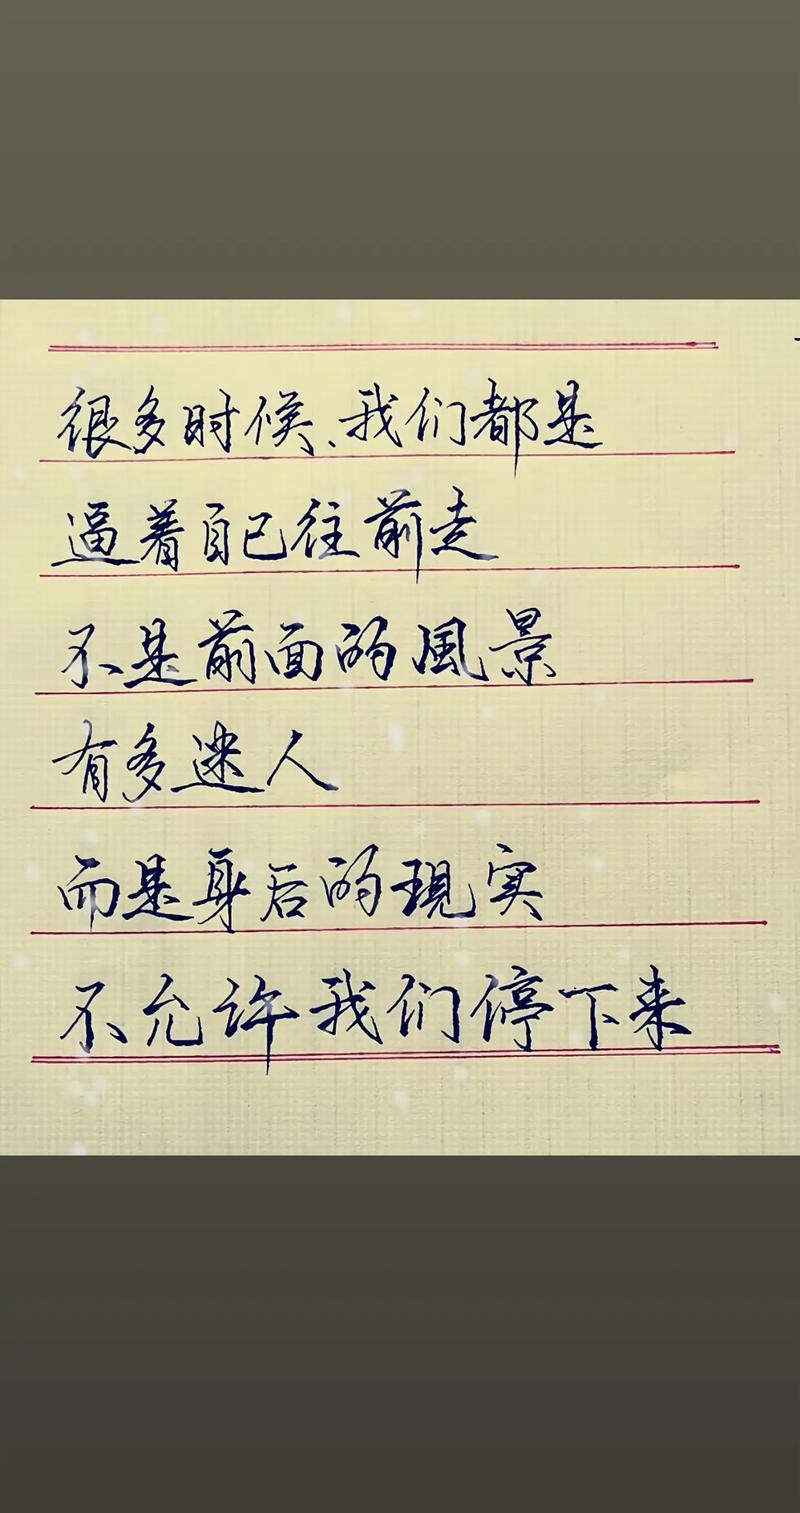 很多时候、我们都是
逼着自己往前走
不是前面的風景
有多迷人
而是身后的現实
不允许我们停下来